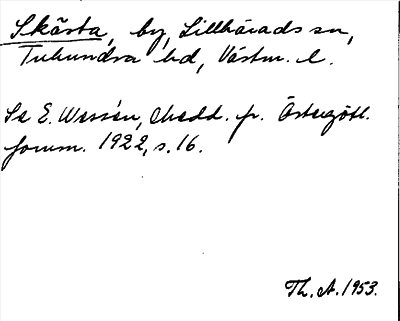 Skästa, by, Lillhärads sn,
Tuhundra hd, Västm. l.
Se E. Wessén, Medd. fr. Östergötl.
fornm. 1922, s. 16.
Th. A. 1953.